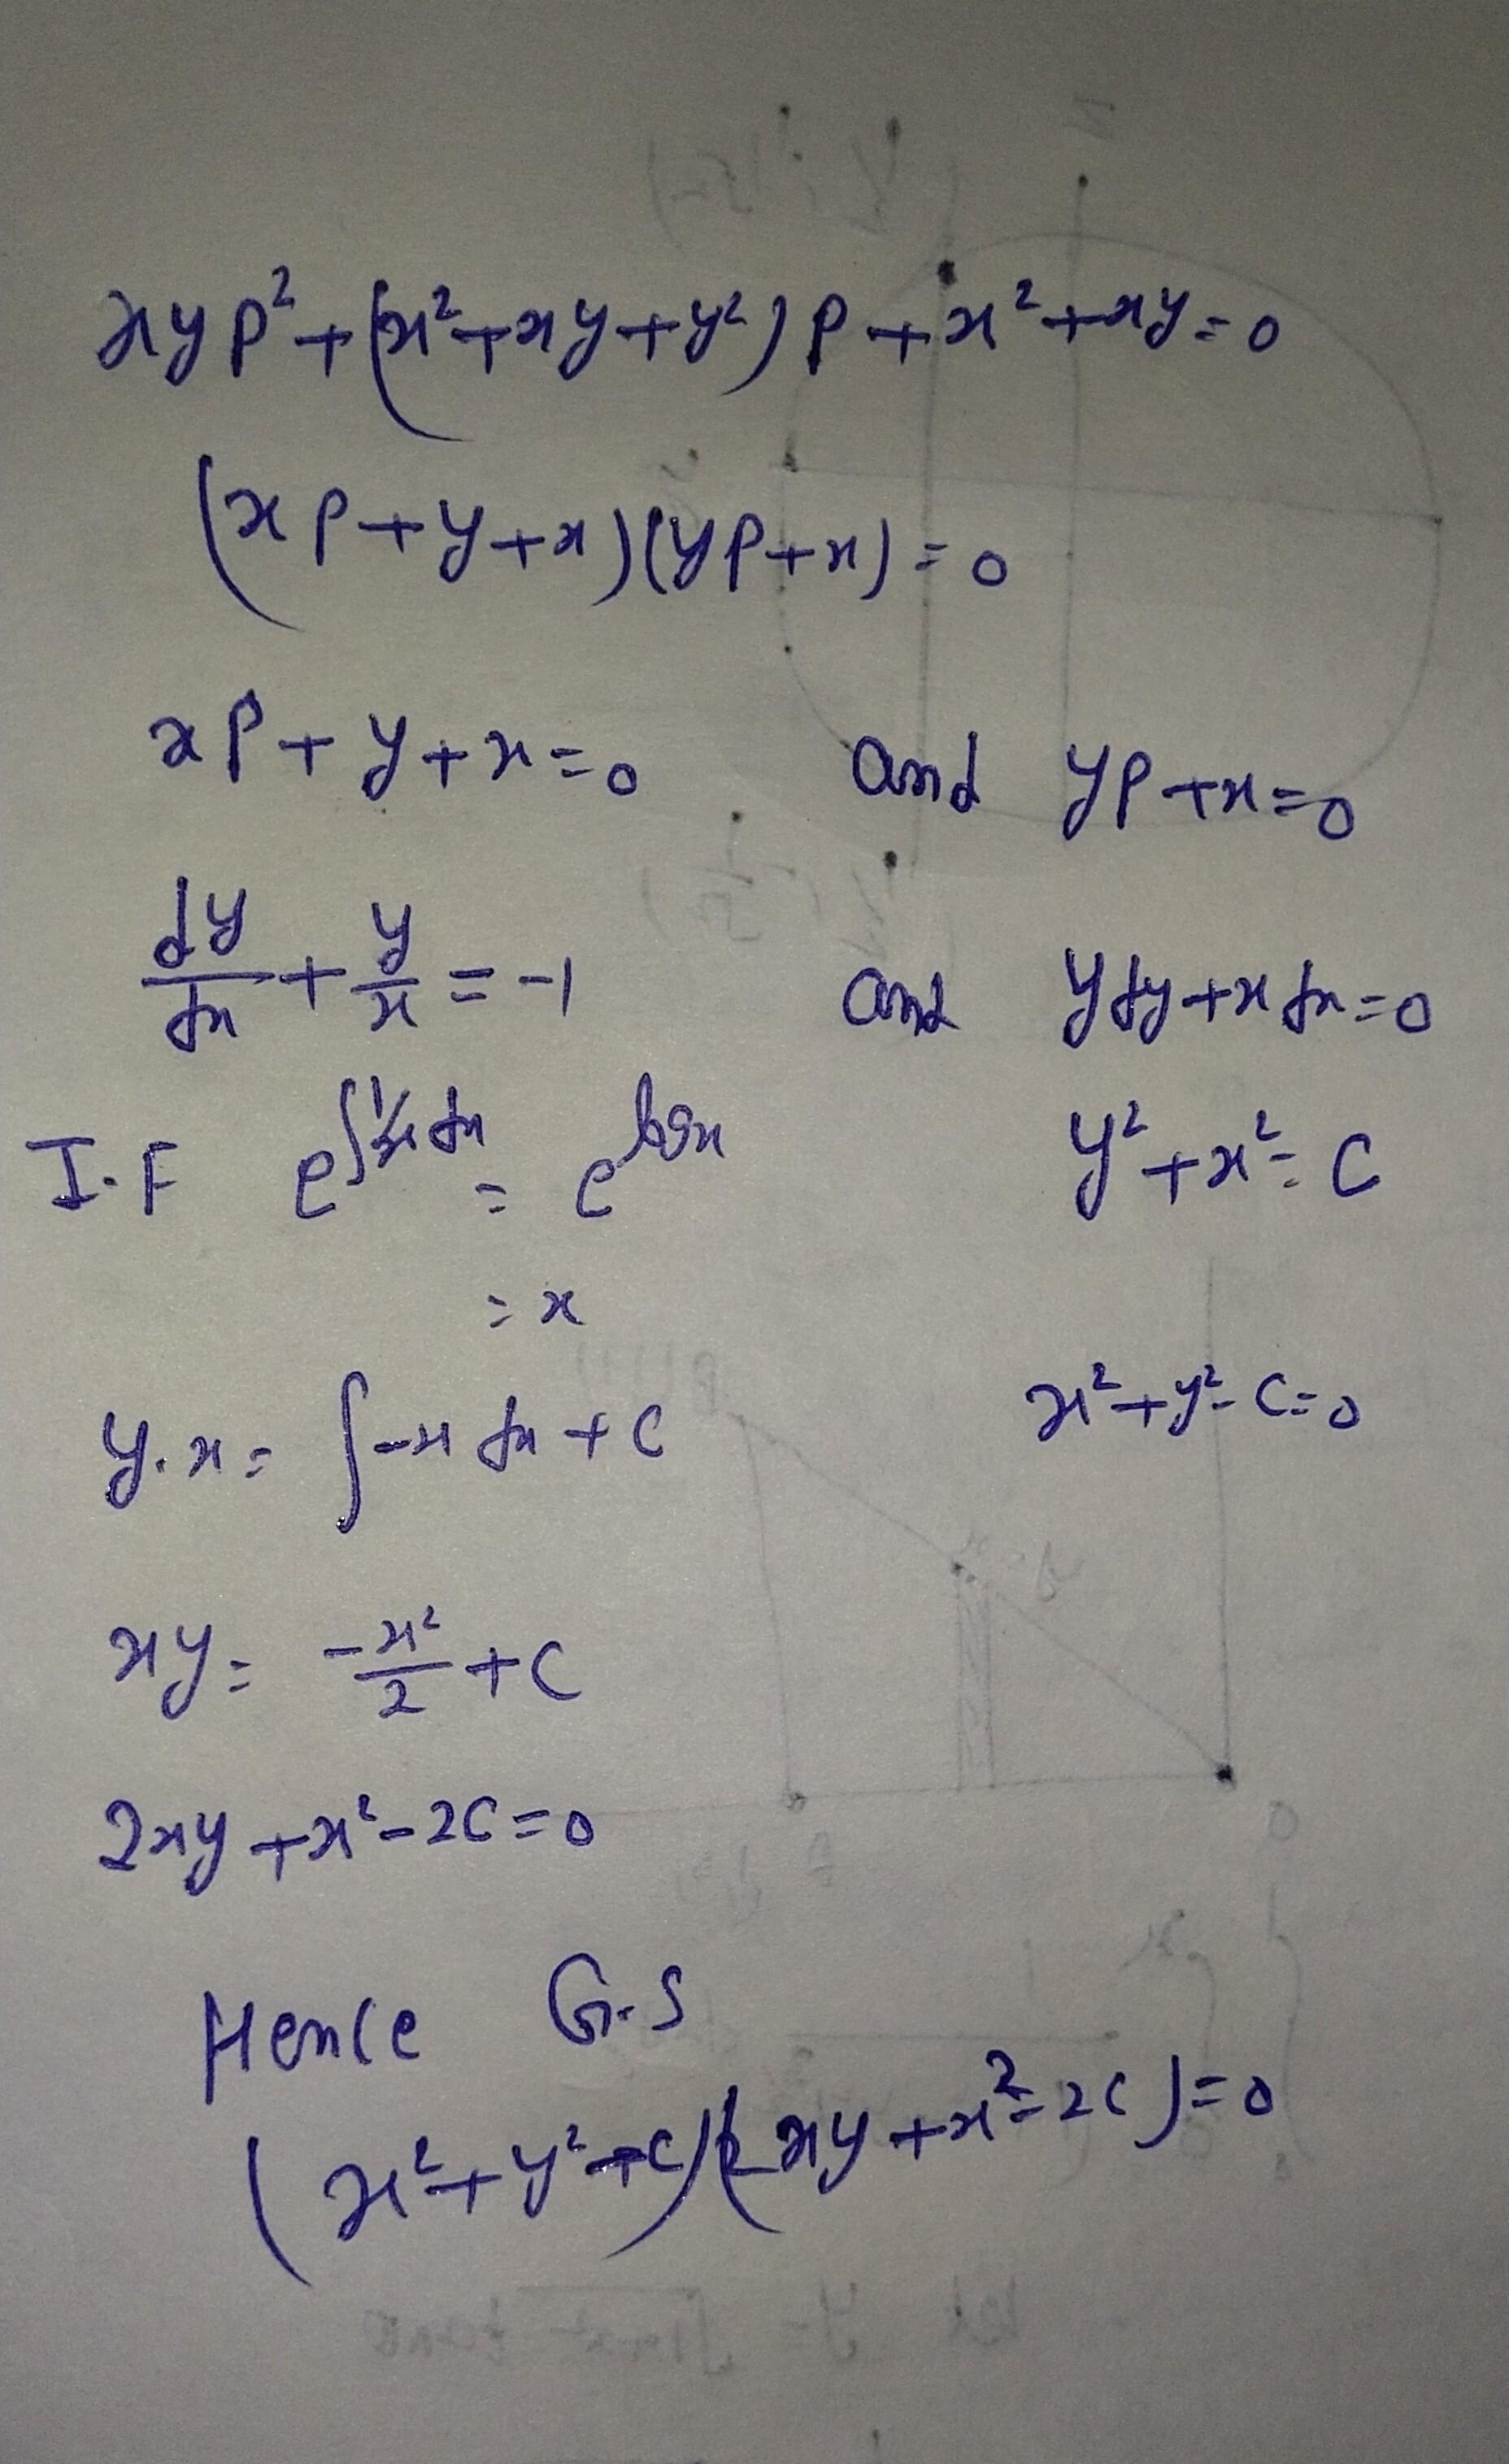 xyp²+(x²+xy+y²)p+x²+xy=0
(xp+y+x)(yp+x)=0
xp+y+x=0 and yp+x=0
dy/dx + y/x = -1 and ydy+xdx=0
I.F e^∫1/x dx = e^logx y²+x²=C
= x
x²+y²-C=0
y.x= ∫-x dx+C
xy= -x²/2+C
2xy+x²-2C=0
Hence G.S
(x²+y²+C)(2xy+x²-2C)=0